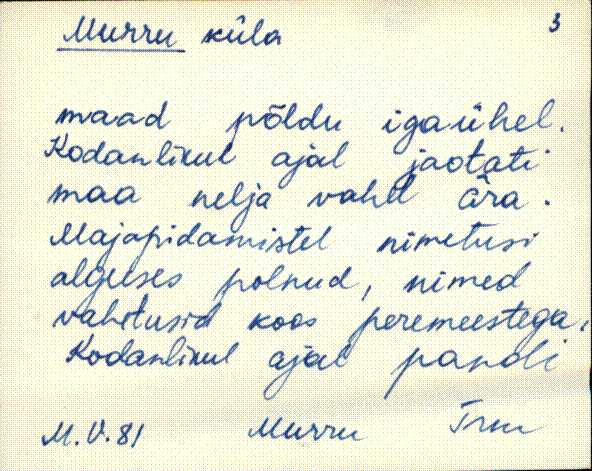 Murru küla 3
maad põldu igaühel.
Kodanlikul ajal jaotati
maa nelja vahel ära.
Majapidamistel nimetusi
alguses polnud, nimed
vahetusid koos peremeestega.
Kodanlikul ajal pandi
M.V.81 Murru